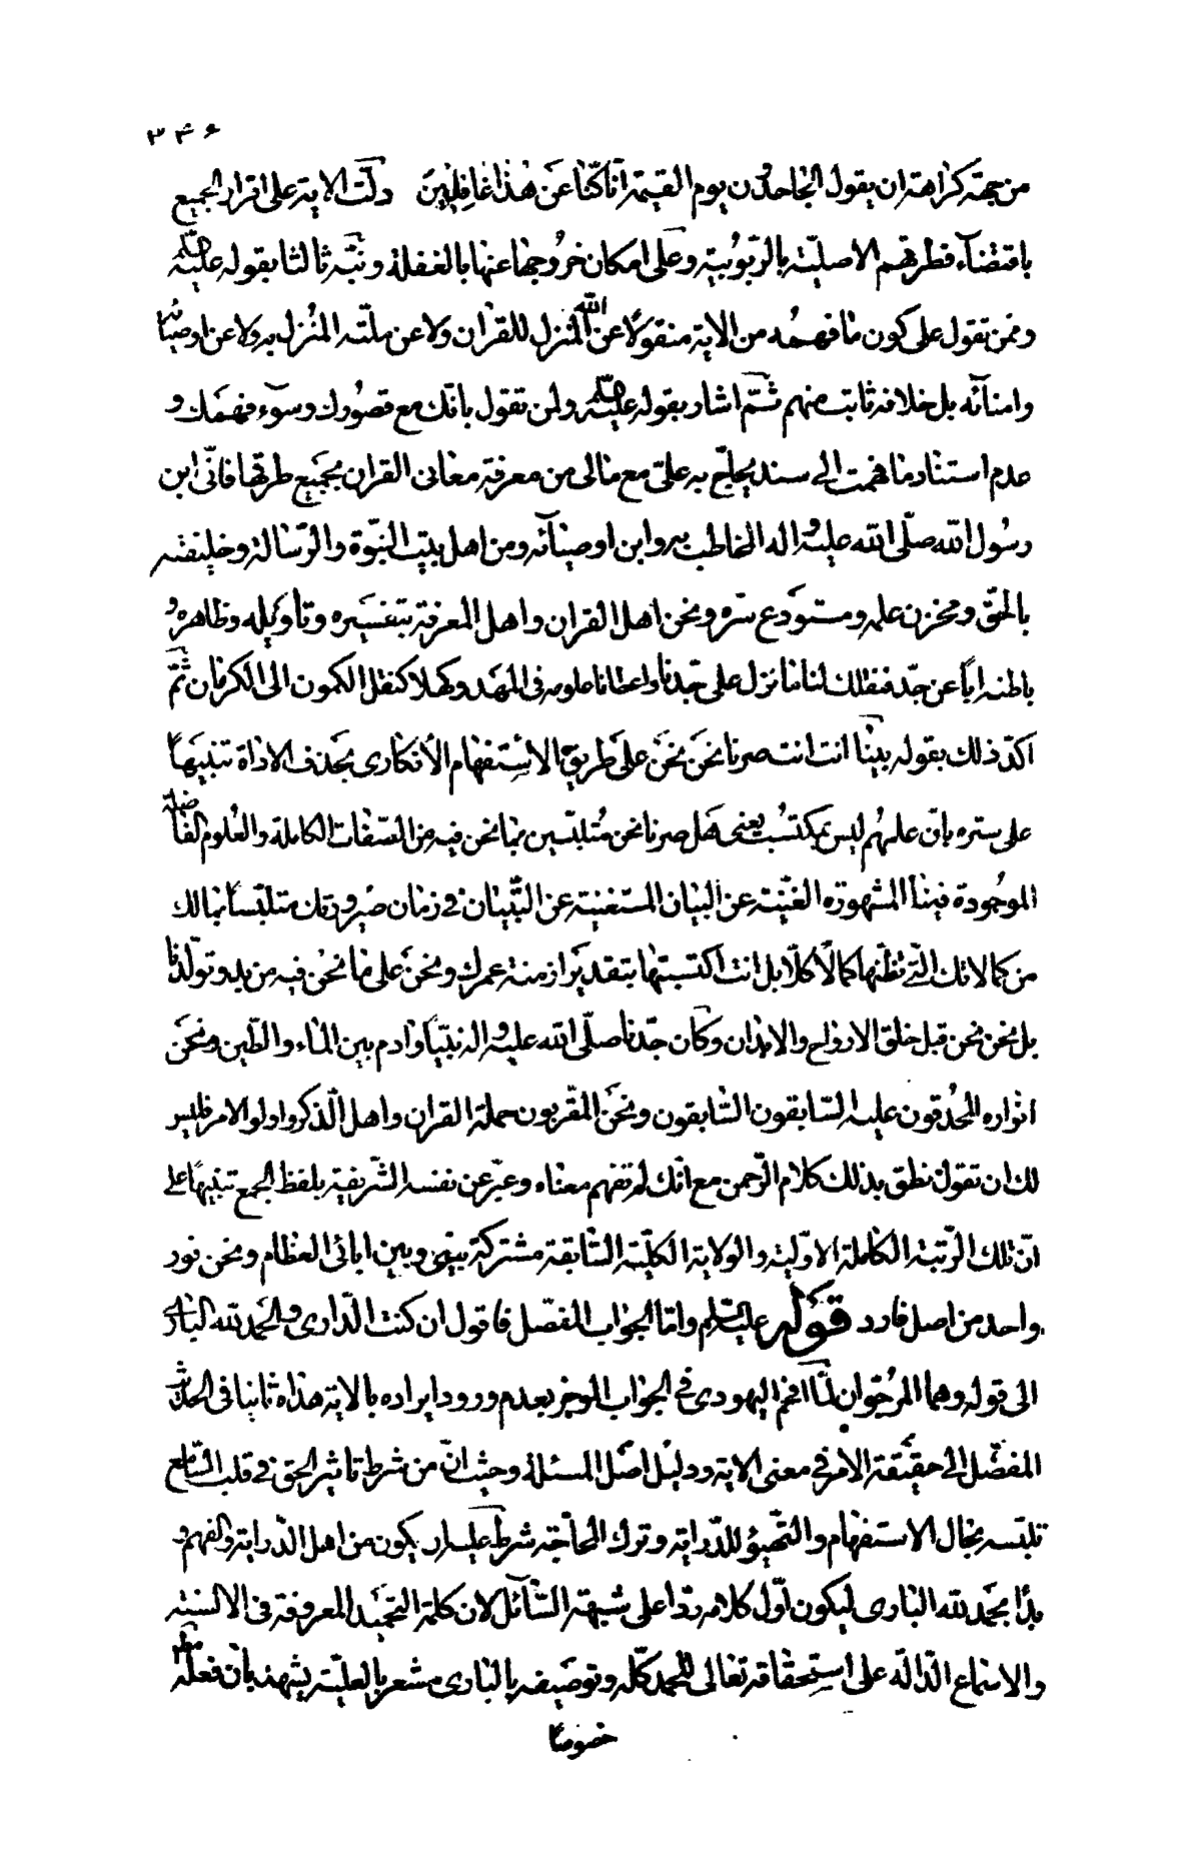 ۳۴۶
من جهة كراهته ان يقول الجاحدون يوم القيمة انا كنا عن هذا غافلين دلّت الاية على اقرار الجميع
باقتضآء فطرتهم الاصليّة بالرّبوبية وعلى امكان خروجها عنها بالغفلة ونبّه ثالثا بقوله عليه
وعمن تقول على كون ما فهمه من الاية منقولًا عن الله المنزل للقران ولا عن ملّته المنزل به ولا عن اوصيائه
وامنآئه بل خلافه ثابت منهم ثمّ اشار بقوله عليه ولمن تقول بانّك مع قصورك وسوء فهمك و
عدم استناد ما فهمت الى سند يحاجّ به علىّ مع مالى من معرفة معانى القران بجميع طرقها فانّى ابن
رسول الله صلّى الله عليه واله المخاطب به وابن اوصيائه ومن اهل بيت النبّوة والرّسالة وخليفته
بالحقّ ومخزن علمه ومستودع سرّه ونحن اهل القران واهل المعرفة بتفسيره وتأويله وظاهره و
باطنه اباً عن جدّ فنقلك لنا ما نزل على جدّنا واعطانا علومه فى المهد وكهلا كنقل الكمون الى الكرمان ثمّ
اكدّ ذلك بقوله بينا انت انت صرنا نحن نحن على طريق الاستفهام الأنكارى بحذف الاداة تنبيهاً
على ستره بانّ علمهم ليس بمكتسب يعنى هل صرنا نحن متلبّسين بما نحن فيه من الصّفات الكاملة والعلوم الفاضلة
الموجودة فينا المشهورة الغنيّة عن البيان المستغنية عن التّبيان فى زمان صيرورتك متلبّساً بمالك
من كمالاتك الّتى تظنّها كمالًا كلّا بل انت اكتسبتها بتقدير ازمنة عمرك ونحن على ما نحن فيه من بدو تولّدنا
بل نحن نحن قبل خلق الارواح والابدان وكان جدّنا صلّى الله عليه واله نبيّاً وادم بين الماء والطّين ونحن
انواره المحدقون عليه السّابقون السّابقون ونحن المقرّبون حملة القران واهل الّذكر واولو الامر فليس
لك ان تقول نطق بذلك كلام الرّحمن مع انّك لم تفهم معناه وعبّر عن نفسه الشّريفة بلفظ الجمع تنبيهاً على
انّ تلك الرّتبة الكاملة الاوّلية والولاية الكلّية السّابقة مشتركة بينى وبين ابائى العظام ونحن نور
واحد من اصل فارد قوله عليه السّلم وامّا الجواب المفصّل فاقول ان كنت الدّارى والحمد لله البارى
الى قوله وهما المرجوان لمّا افحم اليهودى فى الجواب الموجز بعدم ورود ايراده بالاية هذاه ثانيا فى الحديث
المفصّل الى حقيقة الامر فى معنى الاية ودليل اصل المسئلة وحيث انّ من شرط تاثير الحق فى قلب السّامع
تلبّسه بحال الاستفهام والتّهيؤ للدّراية وترك المحاجّة شرط عليه ان يكون من اهل الدّراية والفهم و
بدا بحمد لله البارى ليكون اوّل كلامه ردّا على شبهة السّائل لان كلمة التحميد المعروفة فى الالسنة
والاسماع الدّالّة على استحقاقه تعالى للحمد كلّه وتوصيفه بالبارى مشعر بالعليّة يشهد بان فعله
خصوصاً